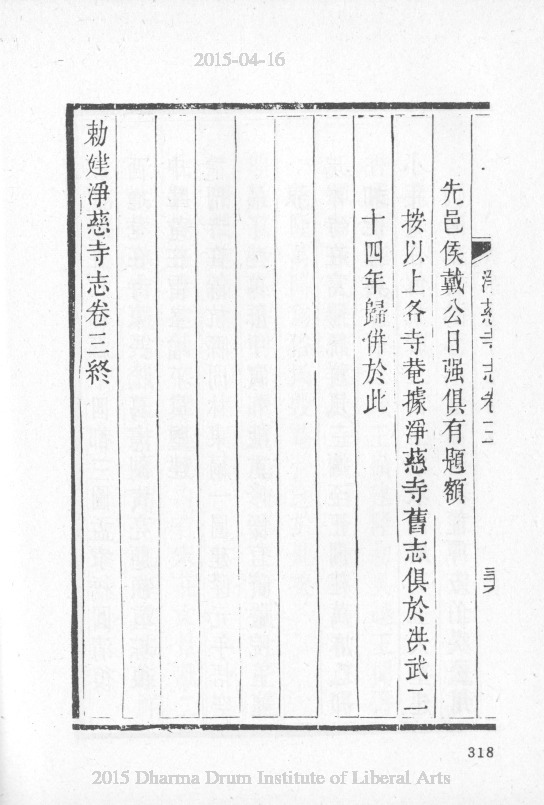 2015-04-16
淨慈寺志卷三
先邑侯戴公日强俱有題額
按以上各寺菴據淨慈寺舊志俱於洪武二
十四年歸併於此
勅建淨慈寺志卷三終
318
2015 Dharma Drum Institute of Liberal Arts